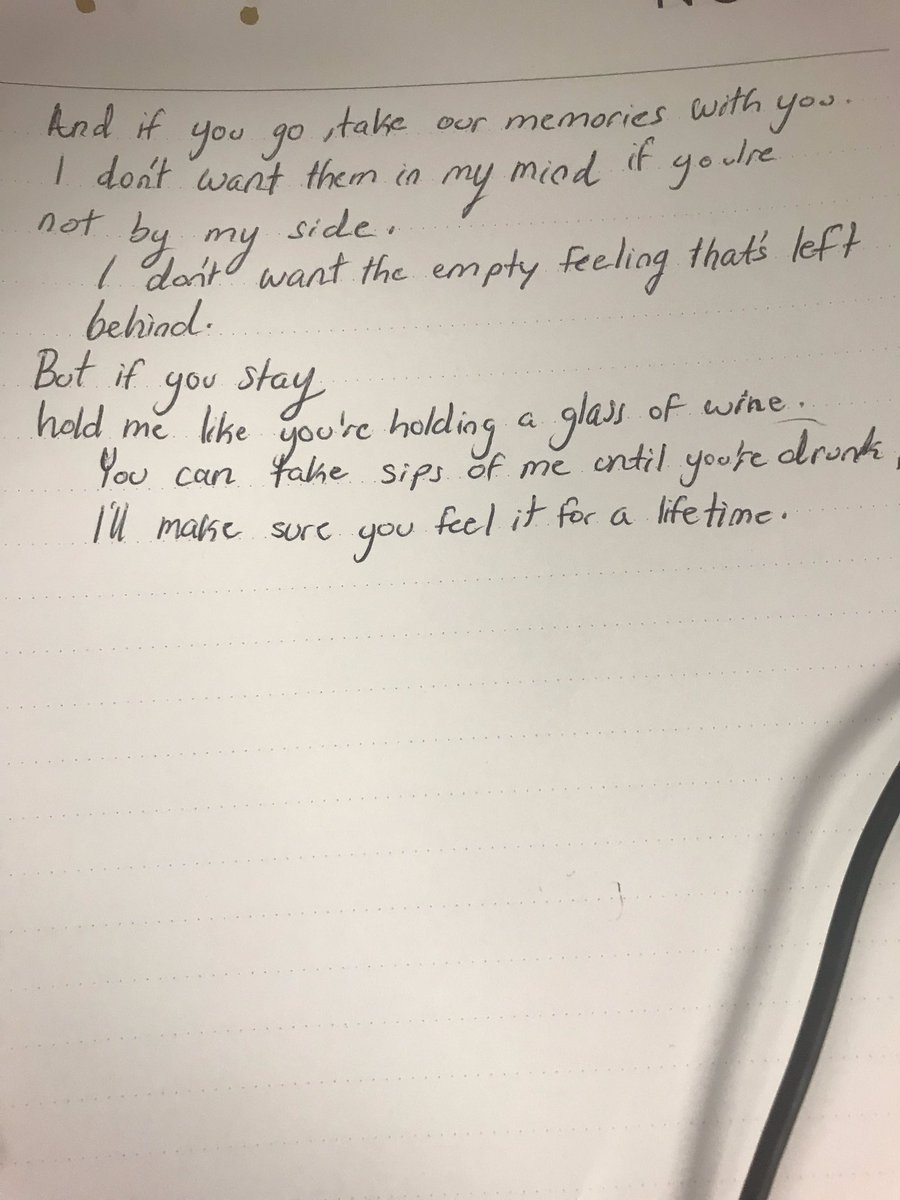 And if you go, take our memories with you.
I don't want them in my mind if you're
not by my side.
I don't want the empty feeling that's left
behind.
But if you stay
hold me like you're holding a glass of wine.
You can take sips of me until you're drunk,
I'll make sure you feel it for a lifetime.